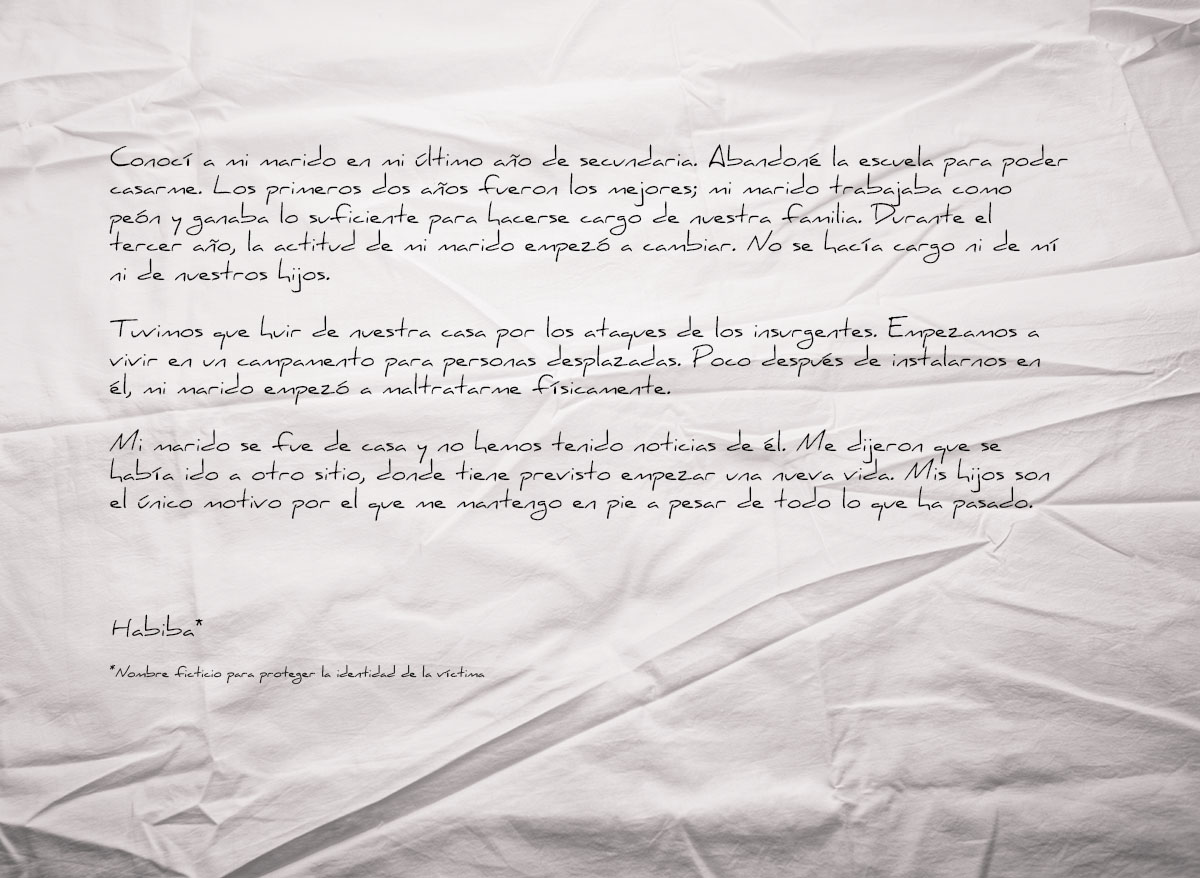 Conocí a mi marido en mi último año de secundaria. Abandoné la escuela para poder
casarme. Los primeros dos años fueron los mejores; mi marido trabajaba como
peón y ganaba lo suficiente para hacerse cargo de nuestra familia. Durante el
tercer año, la actitud de mi marido empezó a cambiar. No se hacía cargo ni de mí
ni de nuestros hijos.
Tuvimos que huir de nuestra casa por los ataques de los insurgentes. Empezamos a
vivir en un campamento para personas desplazadas. Poco después de instalarnos en
él, mi marido empezó a maltratarme físicamente.
Mi marido se fue de casa y no hemos tenido noticias de él. Me dijeron que se
había ido a otro sitio, donde tiene previsto empezar una nueva vida. Mis hijos son
el único motivo por el que me mantengo en pie a pesar de todo lo que ha pasado.
Habiba*
*Nombre ficticio para proteger la identidad de la víctima